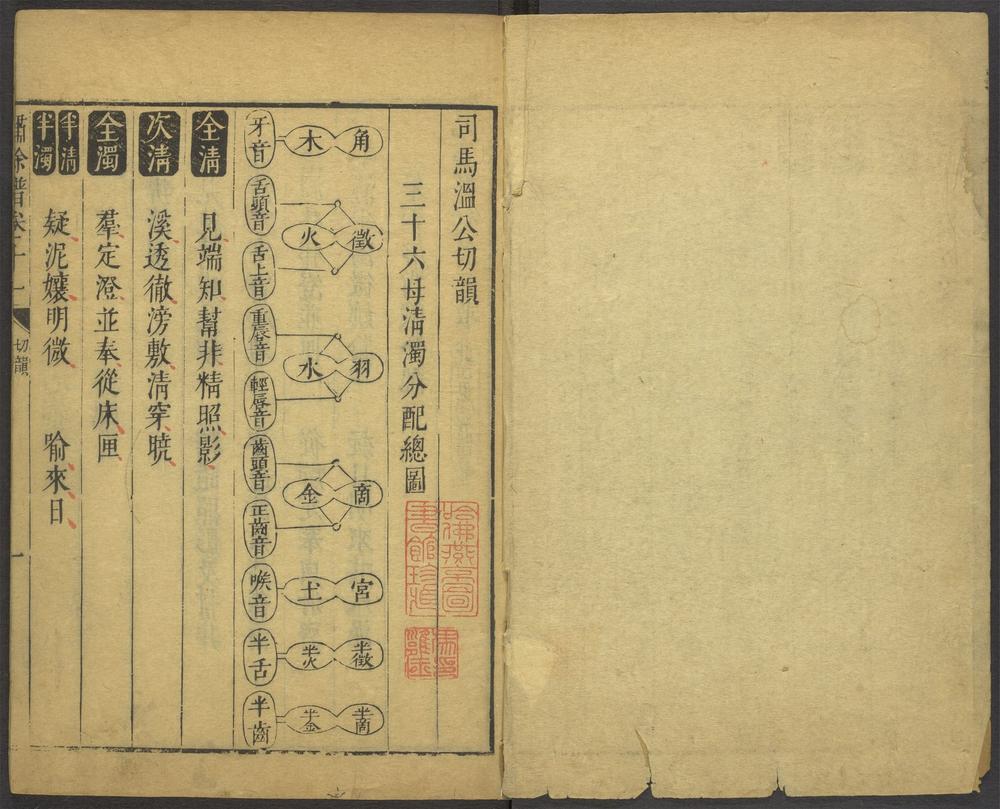 司馬溫公切韻
三十六母清濁分配總圖
角 徵 羽 商 宮 半徵 半商
木 火 水 金 土 半火 半金
牙音 舌頭音 舌上音 重唇音 輕唇音 齒頭音 正齒音 喉音 半舌 半齒
全清 見端知幫非精照影
次清 溪透徹滂敷清穿曉
全濁 羣定澄並奉從床匣
半清 半濁 疑泥孃明微 喻來日
切韻 一
哈佛燕京圖書館珍藏